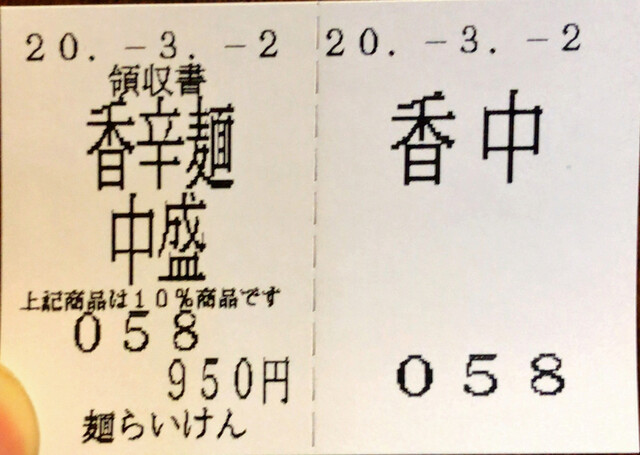 20.-3.-2
領収書
香辛麺
中盛
上記商品は10%商品です
058
950円
麺らいけん
20.-3.-2
香中
058